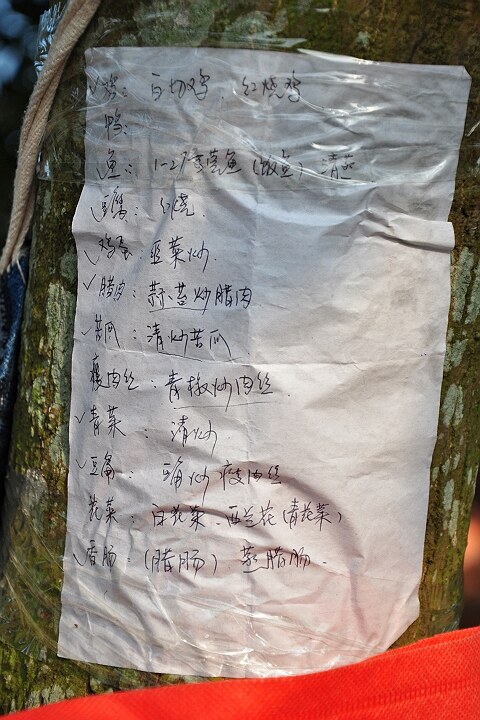 ✓鸡: 白切鸡. 红烧鸡
鸭:
✓鱼: 蒸鱼 (鱼) 清蒸
✓豆腐: 红烧.
✓鸡蛋: 韭菜炒.
✓腊肉: 蒜苔炒腊肉
✓苦瓜: 清炒苦瓜.
瘦肉丝: 青椒炒肉丝.
✓青菜: 清炒
✓豆角: 豆角炒瘦肉丝
花菜: 白花菜. 西兰花(青花菜)
✓香肠: (腊肠) 蒸腊肠.